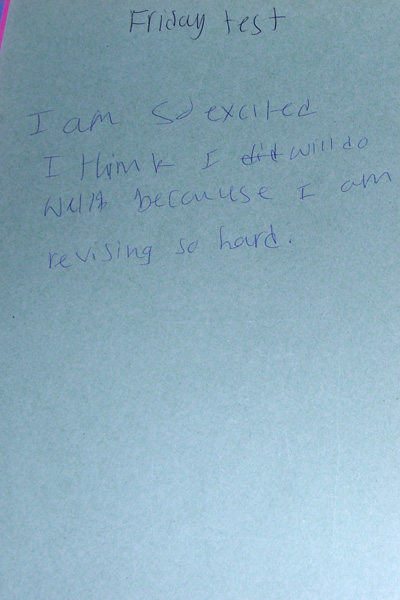 Friday test
I am so excited
I think I did will do
well because I am
revising so hard.